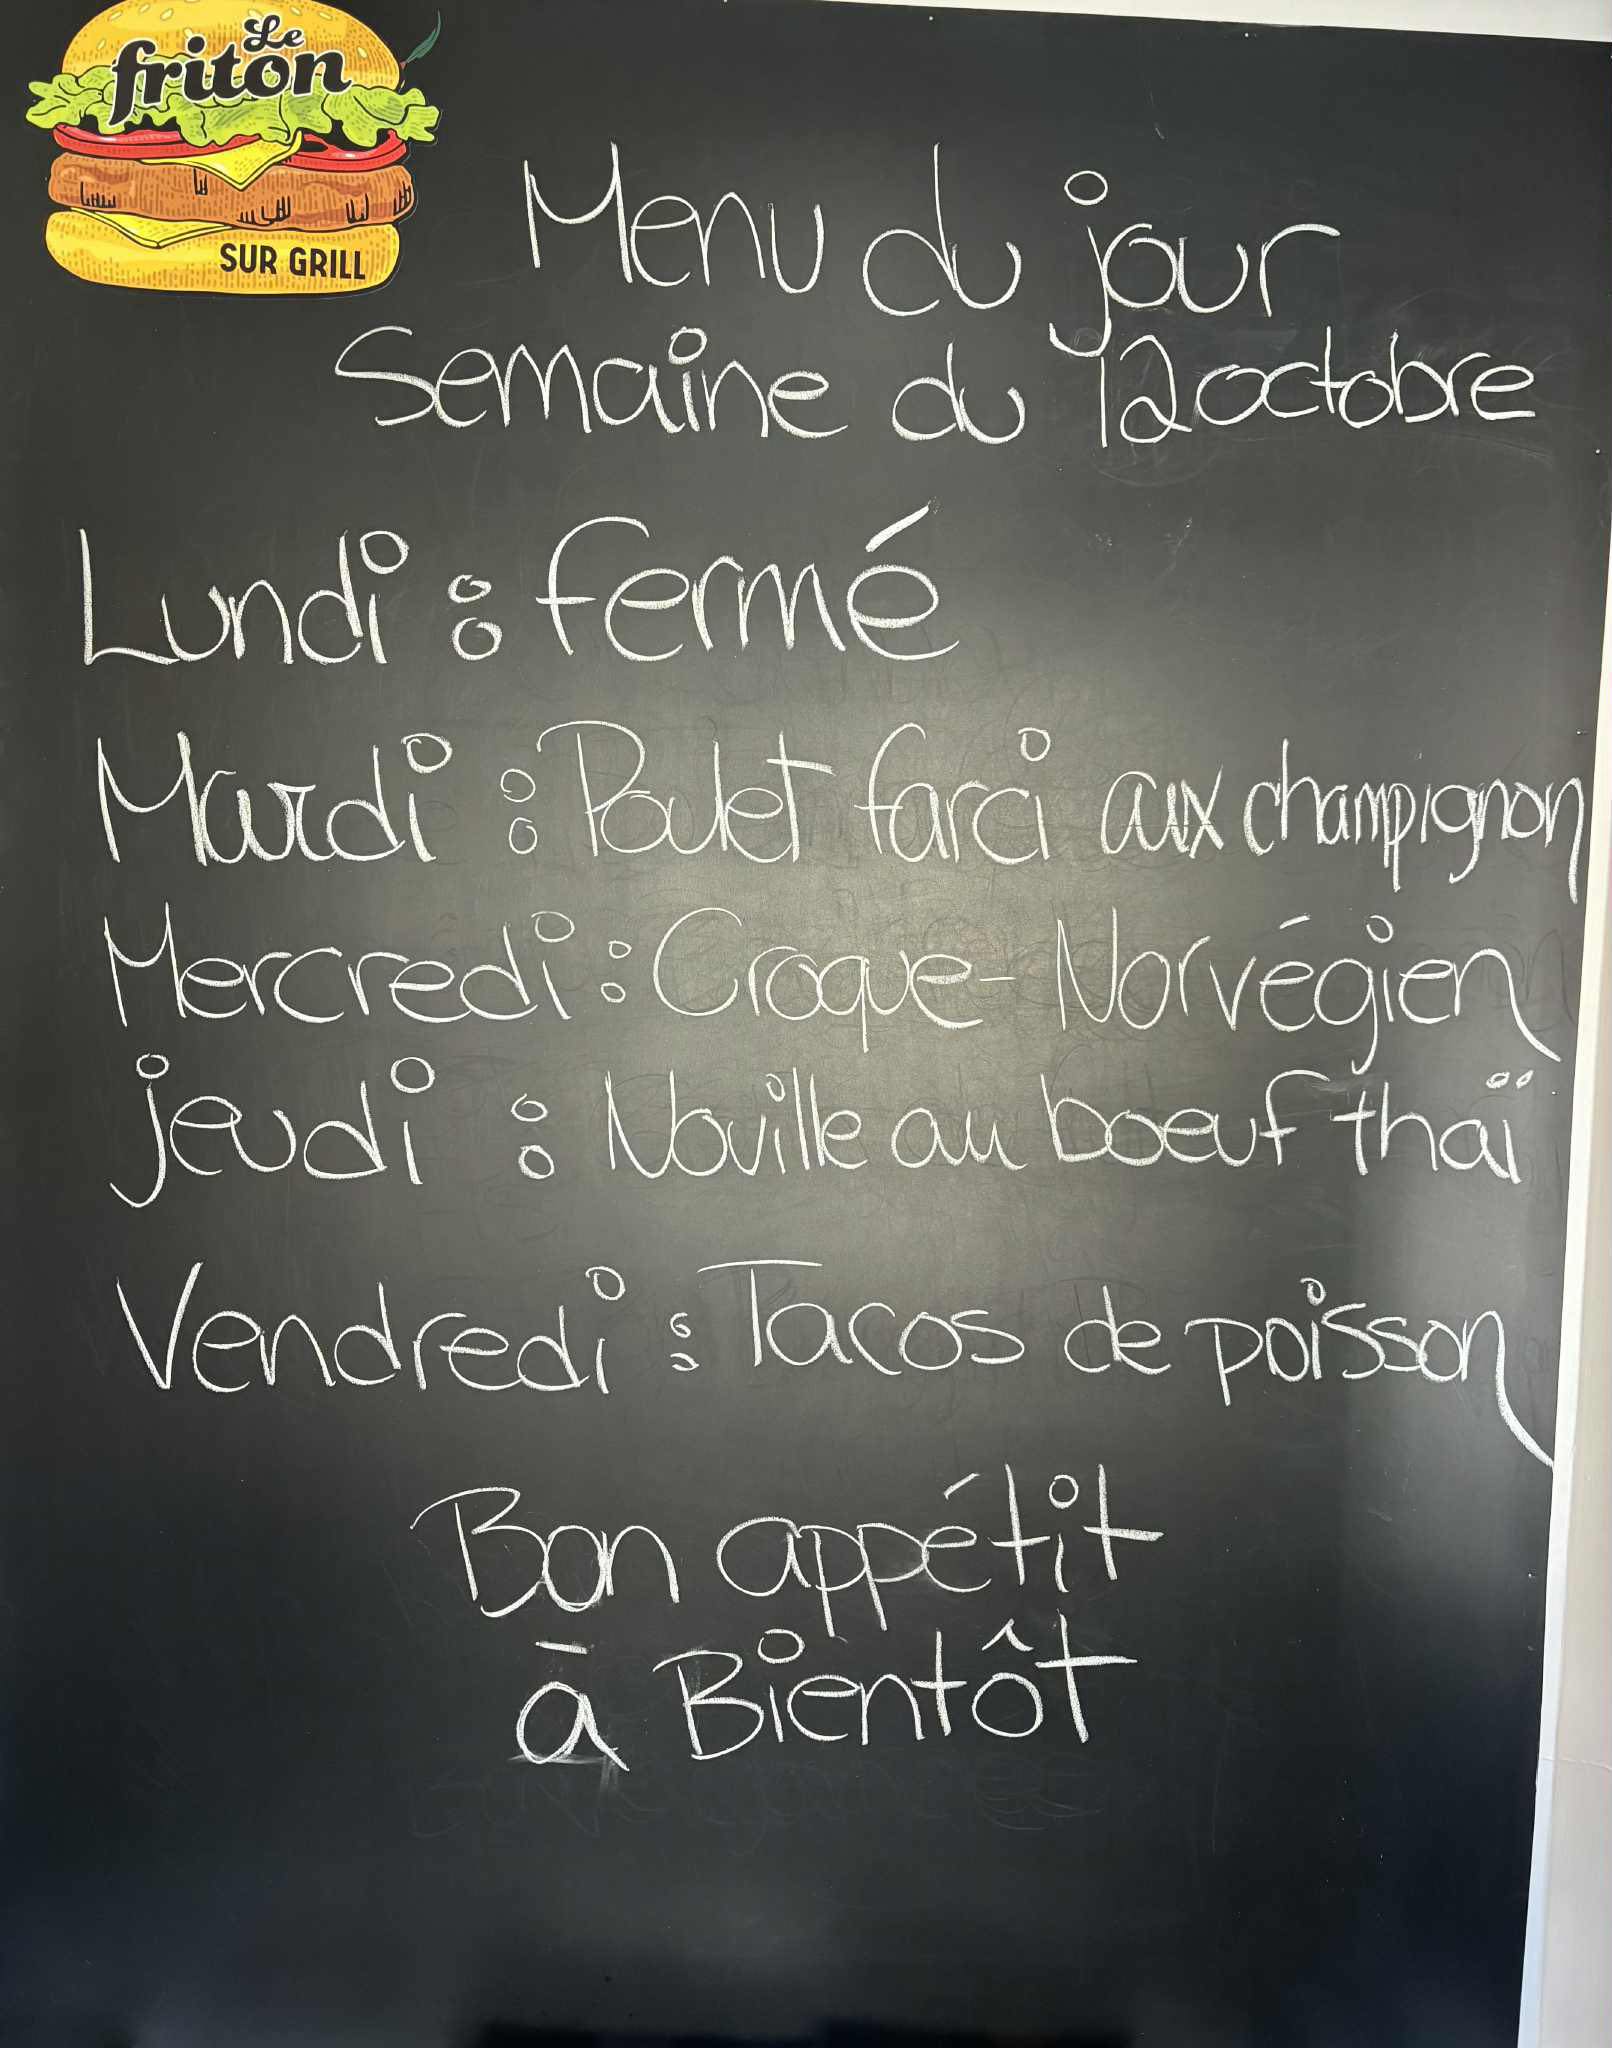 Le
friton
SUR GRILL
Menu du jour
Semaine du 12 octobre
Lundi : fermé
Mardi : Poulet farci aux champignon
Mercredi : Croque-Norvégien
jeudi : Nouille au boeuf thaï
Vendredi : Tacos de poisson
Bon appétit
à Bientôt